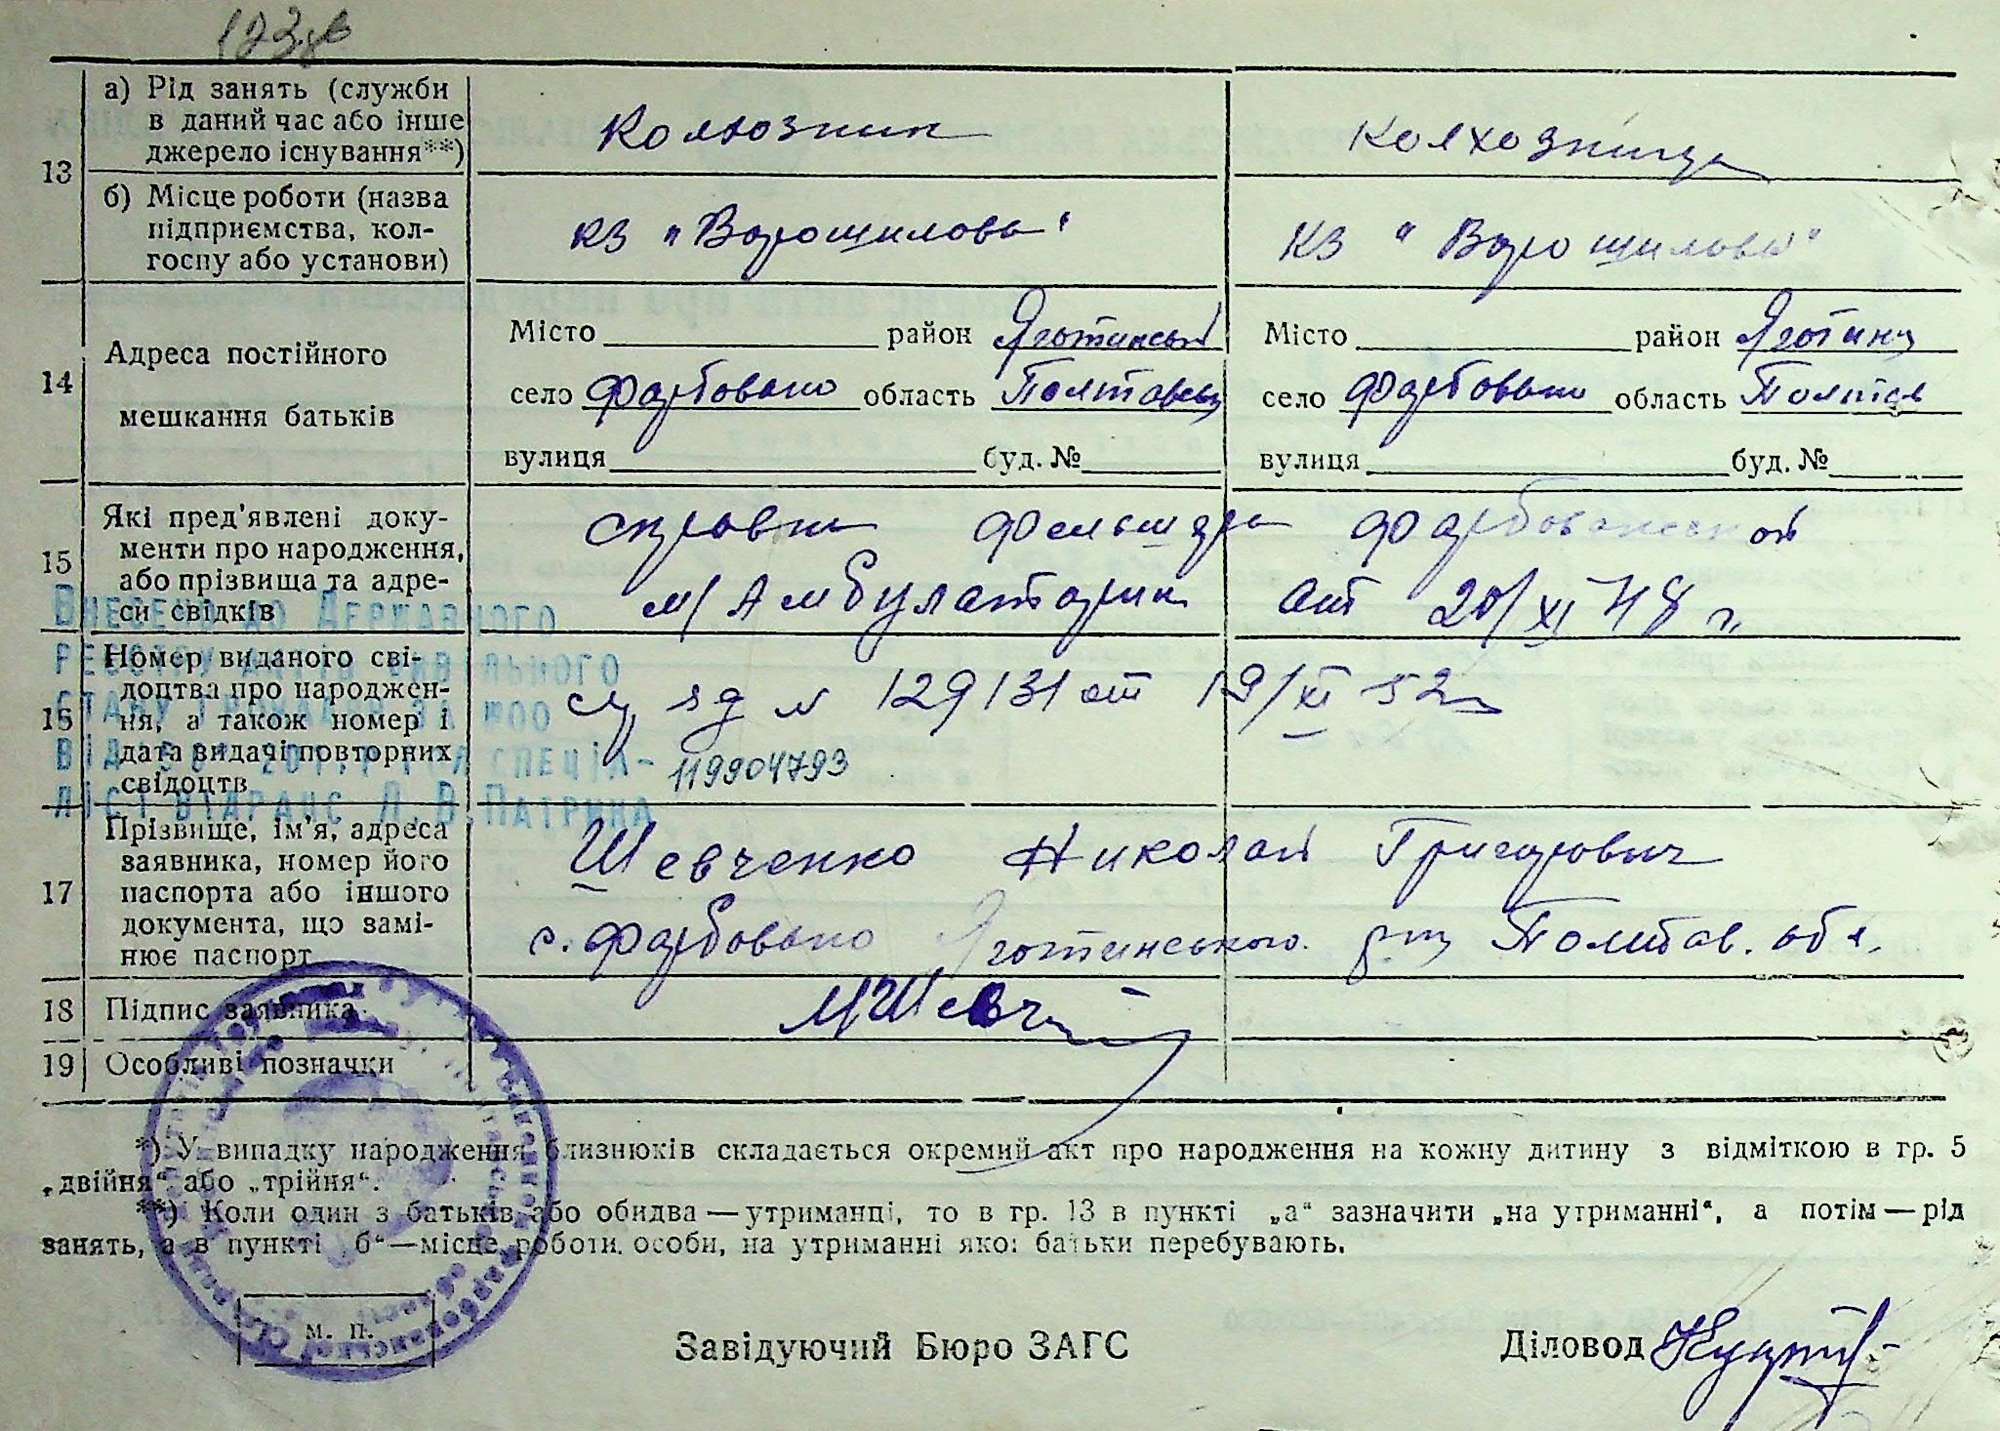 13
а) Рід занять (служби
в даний час або інше
джерело існування**)
Колхозник
колхозница
б) Місце роботи (назва
підприємства, кол-
госпу або установи)
кз "Ворошилова"
кз "Ворошилова"
14
Адреса постійного
мешкання батьків
Місто район Яготинськ
село Фарбовано область Полтавськ
вулиця буд. №
Місто район Яготинс
село Фарбовано область Полтав
вулиця буд. №
15
Які пред'явлені доку-
менти про народження,
або прізвища та адре-
си свідків
справка фельшера Фарбованской
м/Амбулатории от 20/XI 48 г.
16
Номер виданого сві-
доцтва про народжен-
ня, а також номер і
дата видачі повторних
свідоцтв
№ 129131 от 19/XI 52 г
119904793
Внесено до Державного
реєстру актів цивільного
стану громадян за №00
спеціа-
ліст ВДАРАЦС Л.В.Патрина
17
Прізвище, ім'я, адреса
заявника, номер його
паспорта або іншого
документа, що замі-
нює паспорт
Шевченко Николай Григорович
с. Фарбовано Яготинського р-ну Полтав. обл.
18
Підпис заявника
МШевч
19
Особливі позначки
*) У випадку народження близнюків складається окремий акт про народження на кожну дитину з відміткою в гр. 5
„двійня“ або „трійня“.
**) Коли один з батьків або обидва — утриманці, то в гр. 13 в пункті „а“ зазначити „на утриманні“, а потім — рід
занять, а в пункті „б“ — місце роботи особи, на утриманні якої батьки перебувають.
м. п.
Завідуючий Бюро ЗАГС
Діловод